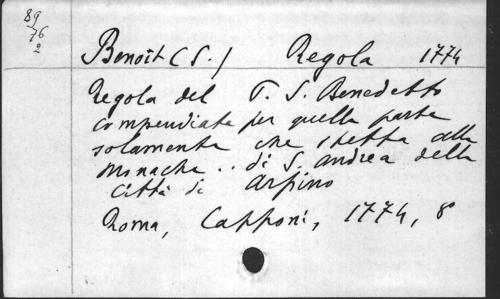 89
76
2
Benoît (S.) Regola 1774
Regola del P. S. Benedetto
compendiata per quella parte
solamente che spetta alle
Monache .. di S. Andrea della
Città di Arpino
Roma, Capponi, 1774, 8°